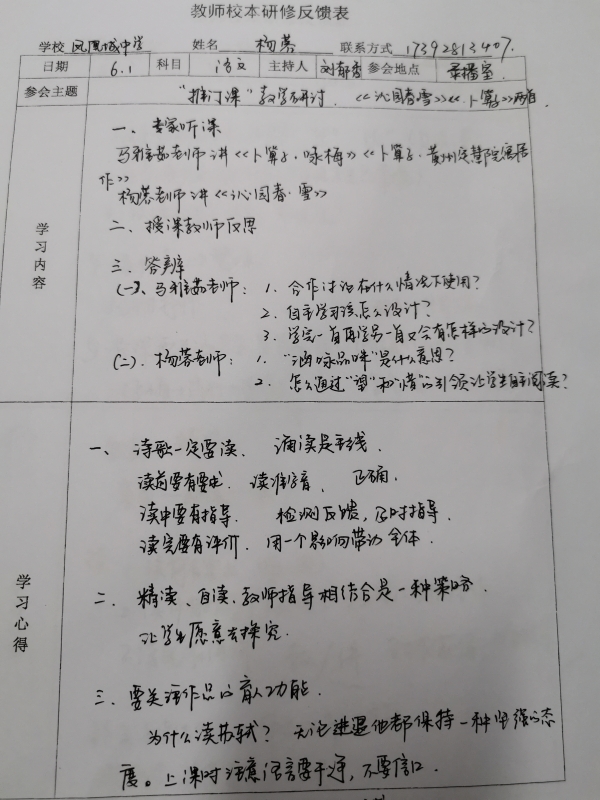 教师校本研修反馈表
学校 凤凰城中学 姓名 杨蓉 联系方式 17392813407.
日期 6.1 科目 语文 主持人 刘郁香 参会地点 录播室.
参会主题 "推门课"教学研讨. 《沁园春雪》《卜算子》两首
学习内容
一、专家听课
马雅茹老师讲《卜算子·咏梅》《卜算子·黄州定慧院寓居
作》
杨蓉老师讲《沁园春·雪》
二、授课教师反思
三、答辩
(一)、马雅茹老师: 1. 合作讨论在什么情况下使用?
2. 自主学习该怎么设计?
3. 学完一首再学另一首又会有怎样的设计?
(二). 杨蓉老师: 1. "涵咏品味"是什么意思?
2. 怎么通过"望"和"惜"的引领让学生自主阅读?
学习心得
一、诗歌一定要读、 诵读是主线.
读前要有要求. 读准字音、 正确.
读中要有指导. 检测反馈,及时指导.
读完要有评价. 用一个影响带动全体.
二、精读、自读、教师指导相结合是一种策略.
让学生愿意去探究.
三、要关注作品的育人功能.
为什么读苏轼? 无论进退他都保持一种坚强的态
度。上课时注意语言要干净,不要信口.